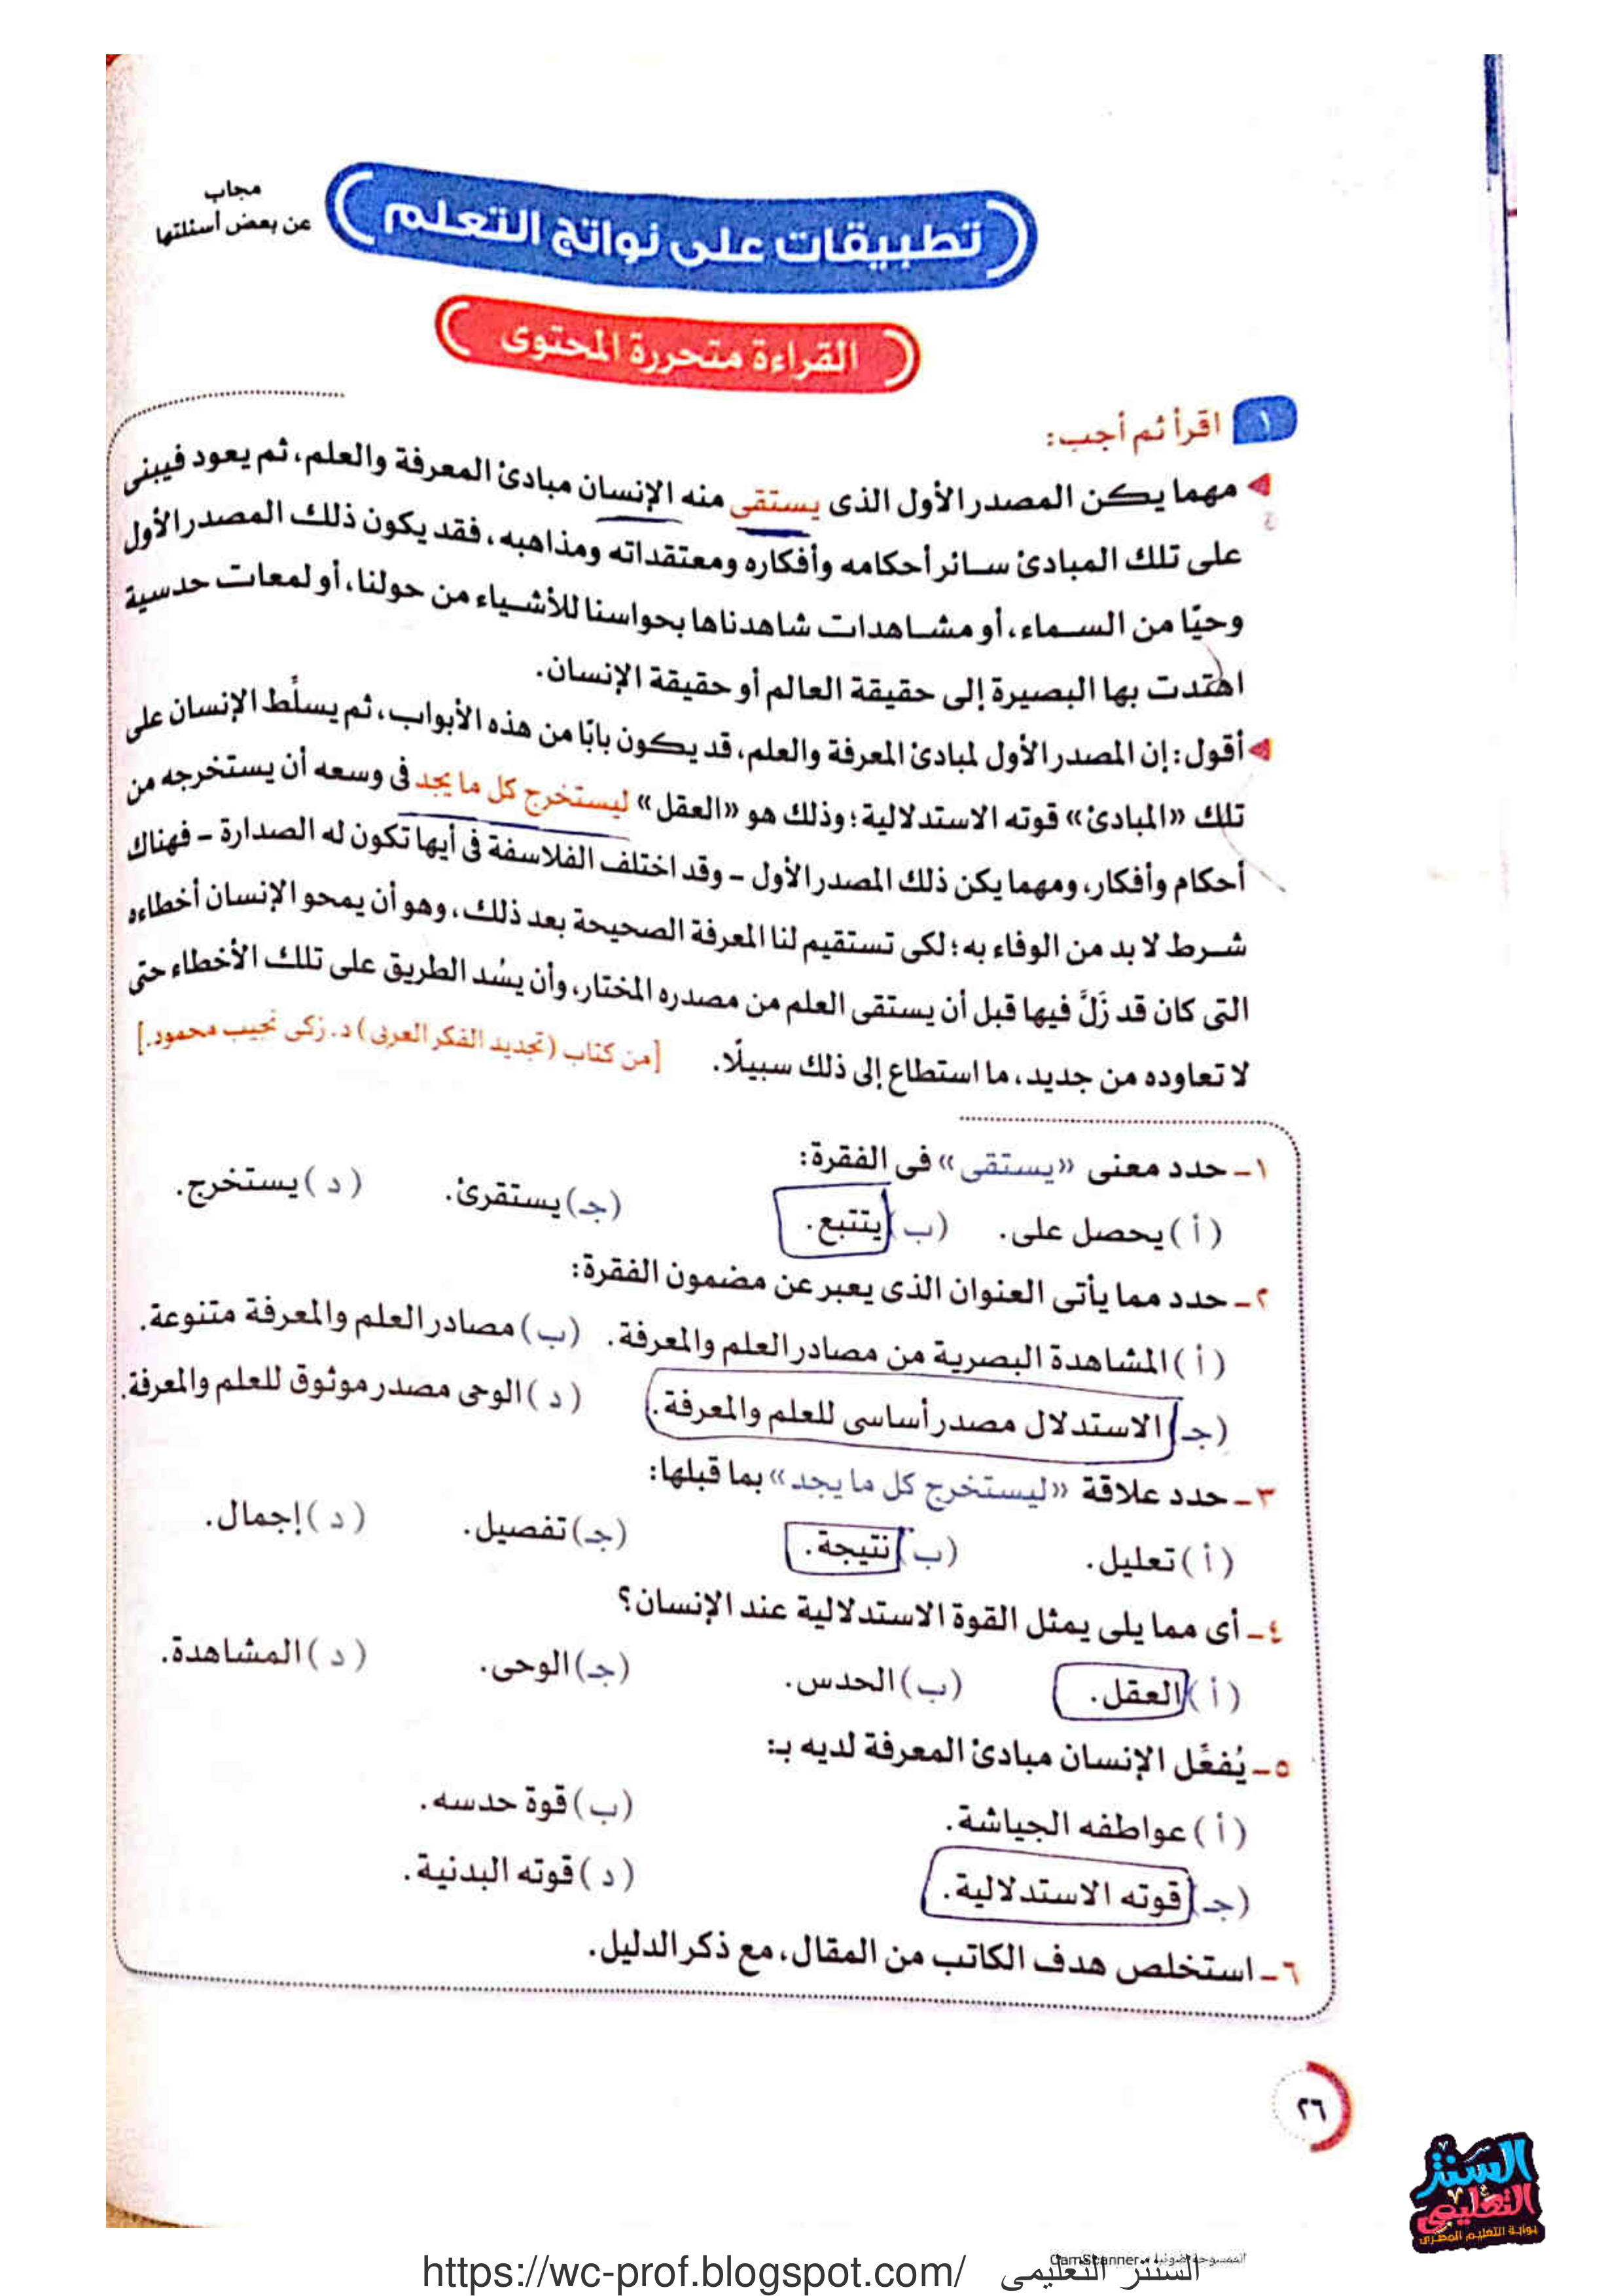 مجاب
عن بعض أسئلتها
تطبيقات على نواتج التعلم
القراءة متحررة المحتوى
١ اقرأ ثم أجب:
مهما يكن المصدر الأول الذى يستقى منه الإنسان مبادئ المعرفة والعلم، ثم يعود فيبنى
على تلك المبادئ سائر أحكامه وأفكاره ومعتقداته ومذاهبه، فقد يكون ذلك المصدر الأول
وحيًا من السماء، أو مشاهدات شاهدناها بحواسنا للأشياء من حولنا، أو لمعات حدسية
اهتدت بها البصيرة إلى حقيقة العالم أو حقيقة الإنسان.
أقول: إن المصدر الأول لمبادئ المعرفة والعلم، قد يكون بابًا من هذه الأبواب، ثم يسلَّط الإنسان على
تلك «المبادئ» قوته الاستدلالية؛ وذلك هو «العقل» ليستخرج كل ما يجد فى وسعه أن يستخرجه من
أحكام وأفكار، ومهما يكن ذلك المصدر الأول – وقد اختلف الفلاسفة فى أيها تكون له الصدارة – فهناك
شرط لا بد من الوفاء به؛ لكى تستقيم لنا المعرفة الصحيحة بعد ذلك، وهو أن يمحو الإنسان أخطاءه
التى كان قد زَلَّ فيها قبل أن يستقى العلم من مصدره المختار، وأن يسُد الطريق على تلك الأخطاء حتى
لا تعاوده من جديد، ما استطاع إلى ذلك سبيلًا. [من كتاب (تجديد الفكر العربى) د. زكى نجيب محمود.]
١- حدد معنى «يستقى» فى الفقرة:
(أ) يحصل على. (ب) يتتبع. (جـ) يستقرئ. (د) يستخرج.
٢- حدد مما يأتى العنوان الذى يعبر عن مضمون الفقرة:
(أ) المشاهدة البصرية من مصادر العلم والمعرفة. (ب) مصادر العلم والمعرفة متنوعة.
(جـ) الاستدلال مصدر أساسى للعلم والمعرفة. (د) الوحى مصدر موثوق للعلم والمعرفة.
٣- حدد علاقة «ليستخرج كل ما يجد» بما قبلها:
(أ) تعليل. (ب) نتيجة. (جـ) تفصيل. (د) إجمال.
٤- أى مما يلى يمثل القوة الاستدلالية عند الإنسان؟
(أ) العقل. (ب) الحدس. (جـ) الوحى. (د) المشاهدة.
٥- يُفعَّل الإنسان مبادئ المعرفة لديه بـ:
(أ) عواطفه الجياشة. (ب) قوة حدسه.
(جـ) قوته الاستدلالية. (د) قوته البدنية.
٦- استخلص هدف الكاتب من المقال، مع ذكر الدليل.
٢٦
السنتر
التعليمى
بوابة التعليم المصرى
الممسوحة ضوئيا بـ CamScanner
https://wc-prof.blogspot.com/ السنتر التعليمى